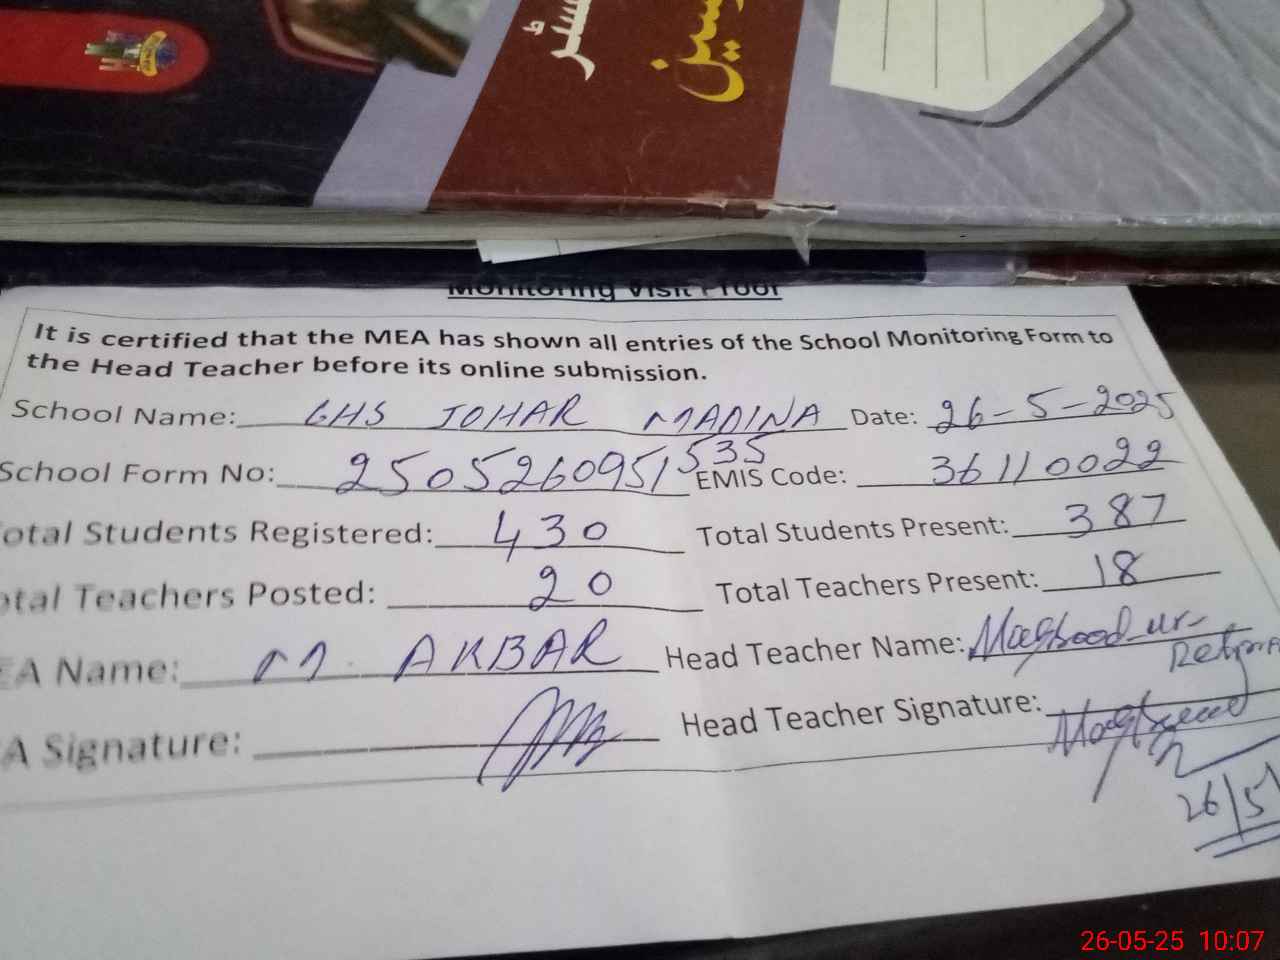 Monitoring Visit Proof
It is certified that the MEA has shown all entries of the School Monitoring Form to
the Head Teacher before its online submission.
School Name: GHS JOHAR MADINA Date: 26-5-2025
School Form No: 2505260951535 EMIS Code: 36110022
otal Students Registered: 430 Total Students Present: 387
otal Teachers Posted: 20 Total Teachers Present: 18
EA Name: M. AKBAR Head Teacher Name: Maqsood-ur-
A Signature: Head Teacher Signature:
26/5
26-05-25 10:07